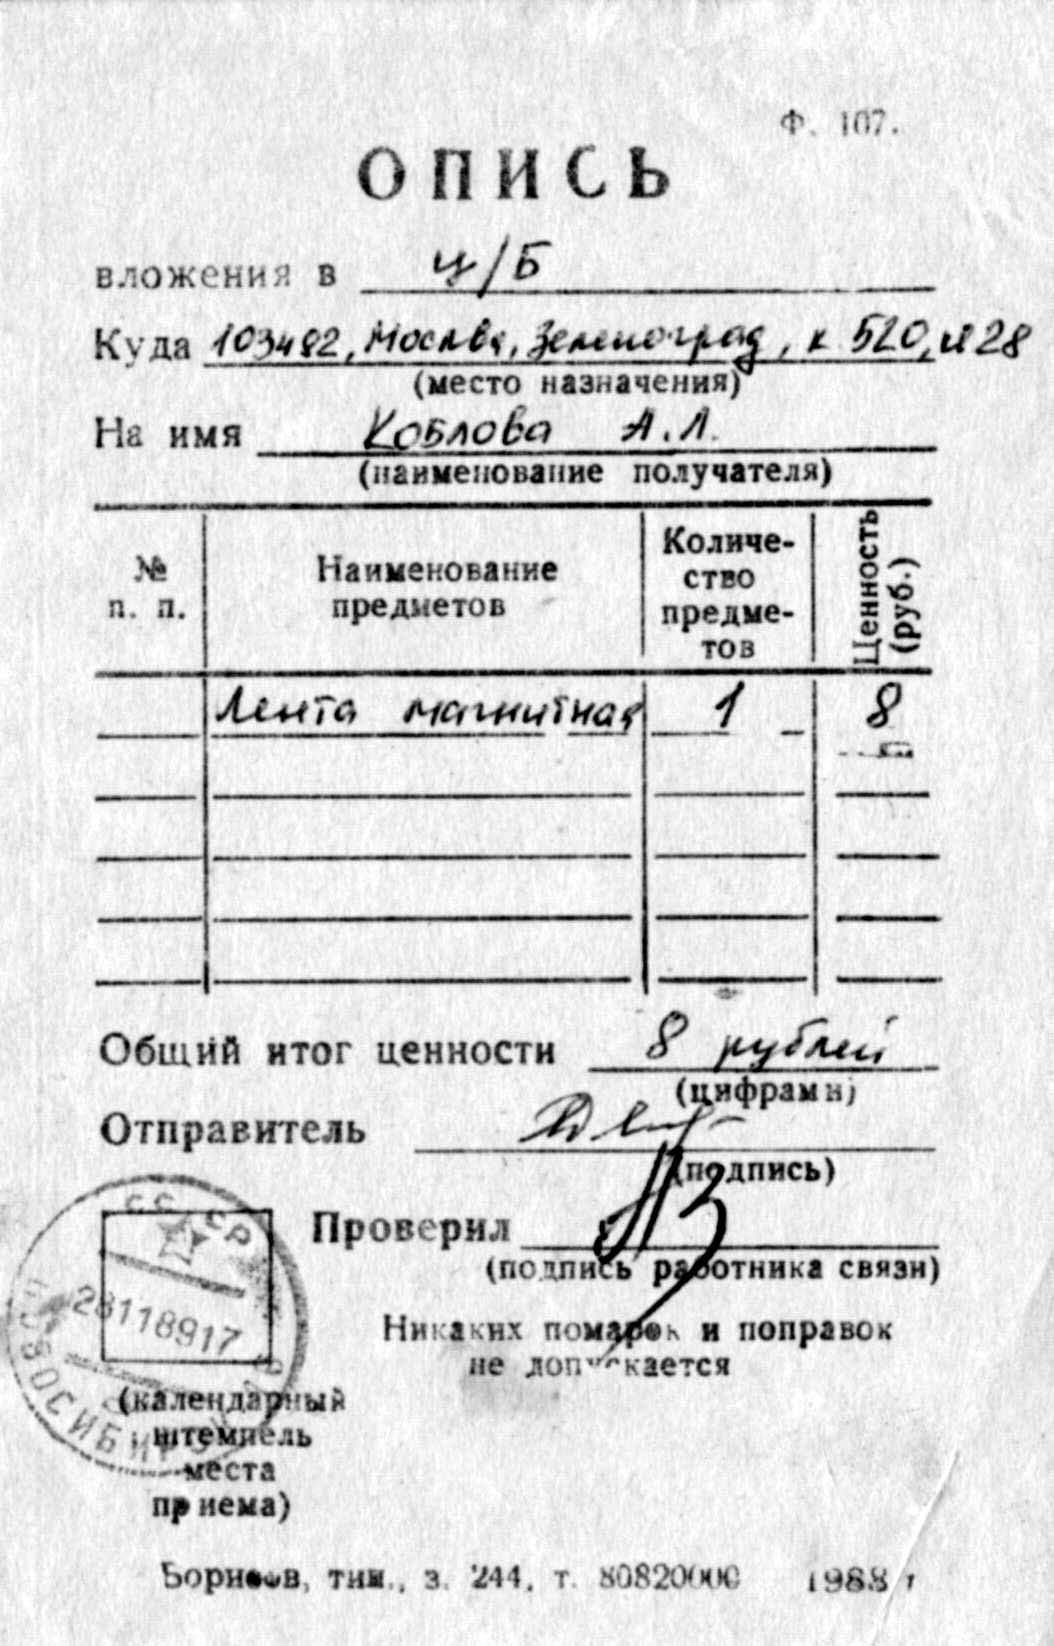 Ф. 107.
ОПИСЬ
вложения в ц/Б
Куда 103482, Москва, Зеленоград, к 520, 28
(место назначения)
На имя Коблова А.Л.
(наименование получателя)
№ п. п.
Наименование предметов
Количе-
ство
предме-
тов
Ценность
(руб.)
Лента магнитная 1 8
Общий итог ценности 8 рублей
(цифрами)
Отправитель
(подпись)
Проверил
(подпись работника связи)
СССР
28118917
НОВОСИБИРСК
Никаких помарок и поправок
не допускается
(календарный
штемпель
места
приема)
Борисов, тип., з. 244, т. 80820000 1988 г